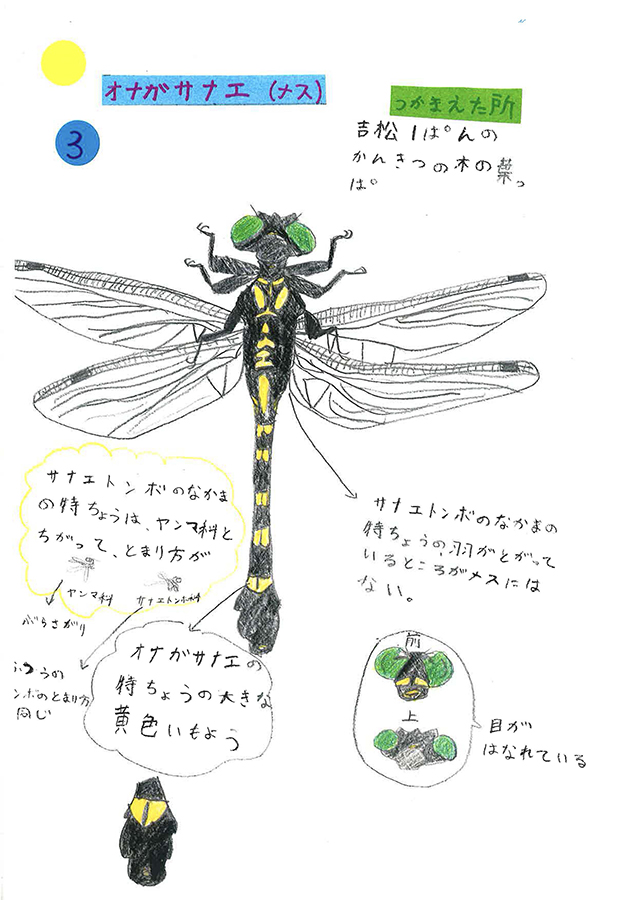 オナガサナエ(メス)
つかまえた所
3
吉松1ぱんの
かんきつの木の葉っ
ぱ
サナエトンボのなかま
の特ちょうは、ヤンマ科と
ちがって、とまり方が
ヤンマ科
サナエトンボ科
ぶらさがり
ふつうの
ンボのとまり方
同じ
サナエトンボのなかまの
特ちょうの、羽がとがって
いるところがメスには
ない。
オナガサナエの
特ちょうの大きな
黄色いもよう
前
上
目が
はなれている